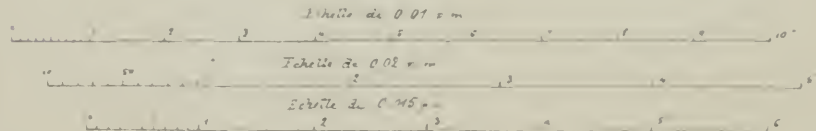 Echelle de 0.01 p m
0 1 2 3 4 5 6 7 8 9 10
Echelle de 0.02 p m
10 50 2 3 4 5
Echelle de 0.015 p m
0 1 2 3 4 5 6